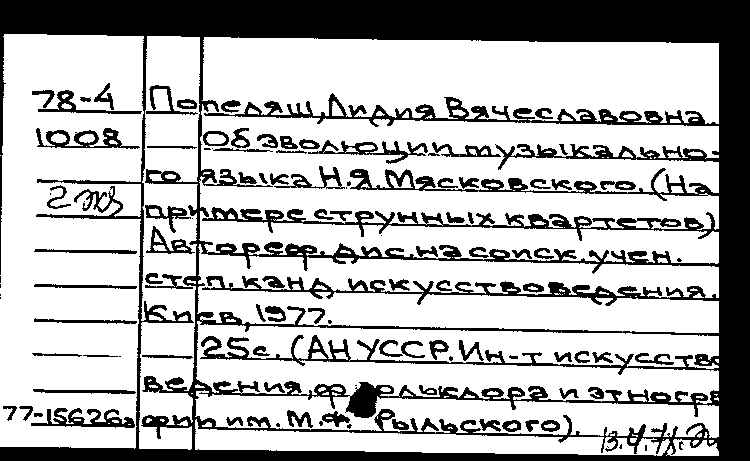 78-4 Попеляш, Лидия Вячеславовна.
1008 Об эволюции музыкально-
го языка Н.Я. Мясковского. (На
2 экз примере струнных квартетов)
Автореф. дис. на соиск. учен.
степ. канд. искусствоведения.
Киев, 1977.
25с. (АН УССР. Ин-т искусство
ведения, фольклора и этногра
77-15626а фии им. М.Ф. Рыльского).
13.4.78.